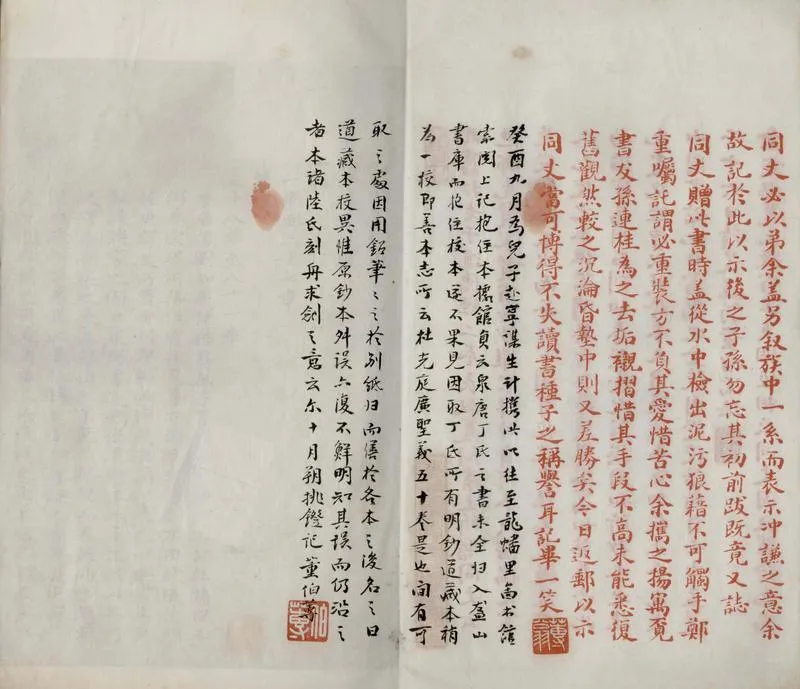 同丈必以弟余蓋另敘族中一系而表示冲謙之意余
故記於此以示後之子孫勿忘其初前跋既竟又誌
同丈贈此書時蓋從水中檢出泥污狼藉不可觸手鄭
重囑託謂必重裝方不負其愛惜苦心余攜之揚寓覓
書友孫連桂為之去垢襯摺惜其手段不高未能悉復
舊觀然較之沉淪昏墊中則又差勝矣今日返郵以示
同丈當可博得不失讀書種子之稱譽耳記畢一笑
癸酉九月為兒子赴寧謀生計攜此以往至龍蟠里圖书館
索閱上記抱任本據館員云泉唐丁氏之書未全归入盋山
書庫而抱任校本遂不果見因取丁氏所有明鈔道藏本稍
為一校即善本志所云杜光庭廣聖義五十卷是也間有可
取之處因用鉛筆之於別紙归而繕於各本之後名之曰
道藏本校異惟原鈔本舛误亦復不鮮明知其误而仍沿之
者本諸陸氏刻舟求劍之意云尔十月朔挑鐙記董伯